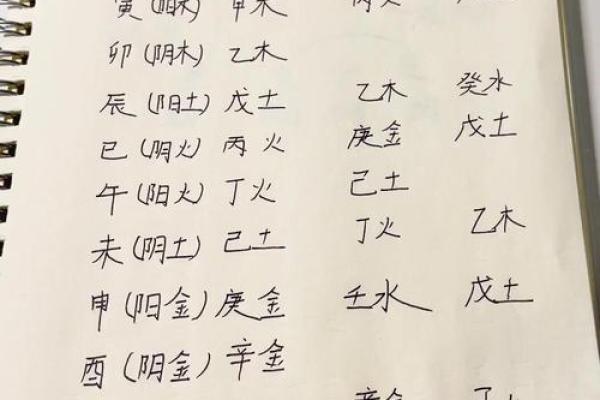 寅(阳木) 甲木 丙火
卯(阴木) 乙木
辰(阳土) 戊土 乙木 癸水
巳(阴火) 丙火 庚金 戊土
午(阳火) 丁火 己土
未(阴土) 己土 丁火 乙木
申(阳金) 庚金 壬水 戊土
酉(阴金) 辛金
辛金 丁火